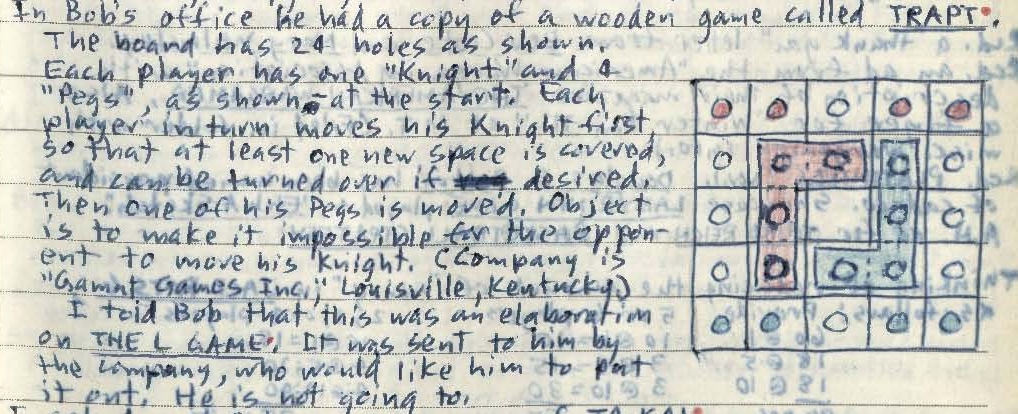 In Bob's office he had a copy of a wooden game called TRAPT.
The board has 24 holes as shown.
Each player has one "Knight" and 4
"Pegs", as shown at the start. Each
player in turn moves his Knight first,
so that at least one new space is covered,
and can be turned over if desired.
Then one of his Pegs is moved. Object
is to make it impossible for the oppon-
ent to move his Knight. (Company is
"Gamut Games Inc.," Louisville, Kentucky.)
I told Bob that this was an elaboration
on THE L GAME. It was sent to him by
the company, who would like him to put
it out. He is not going to.